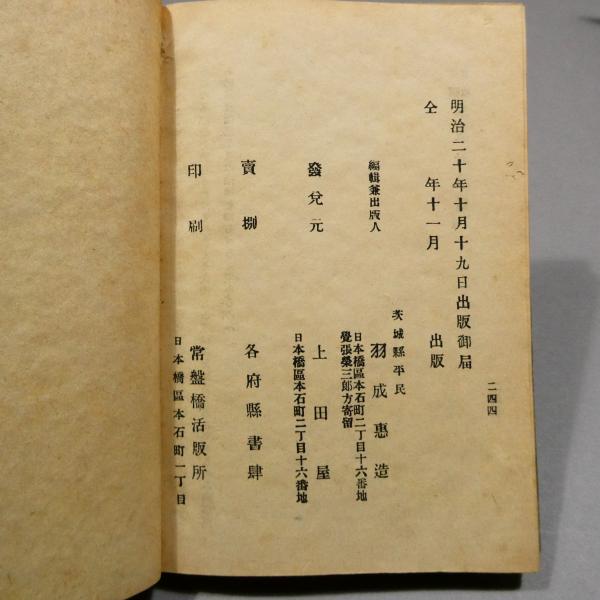 二四四
明治二十年十月十九日出版御届
仝 年十一月 出版
編輯兼出版人
茨城縣平民
羽成惠造
日本橋區本石町二丁目十六番地
覺張榮三郎方寄留
發兌元 上田屋
日本橋區本石町二丁目十六番地
賣捌 各府縣書肆
印刷 常盤橋活版所
日本橋區本石町一丁目